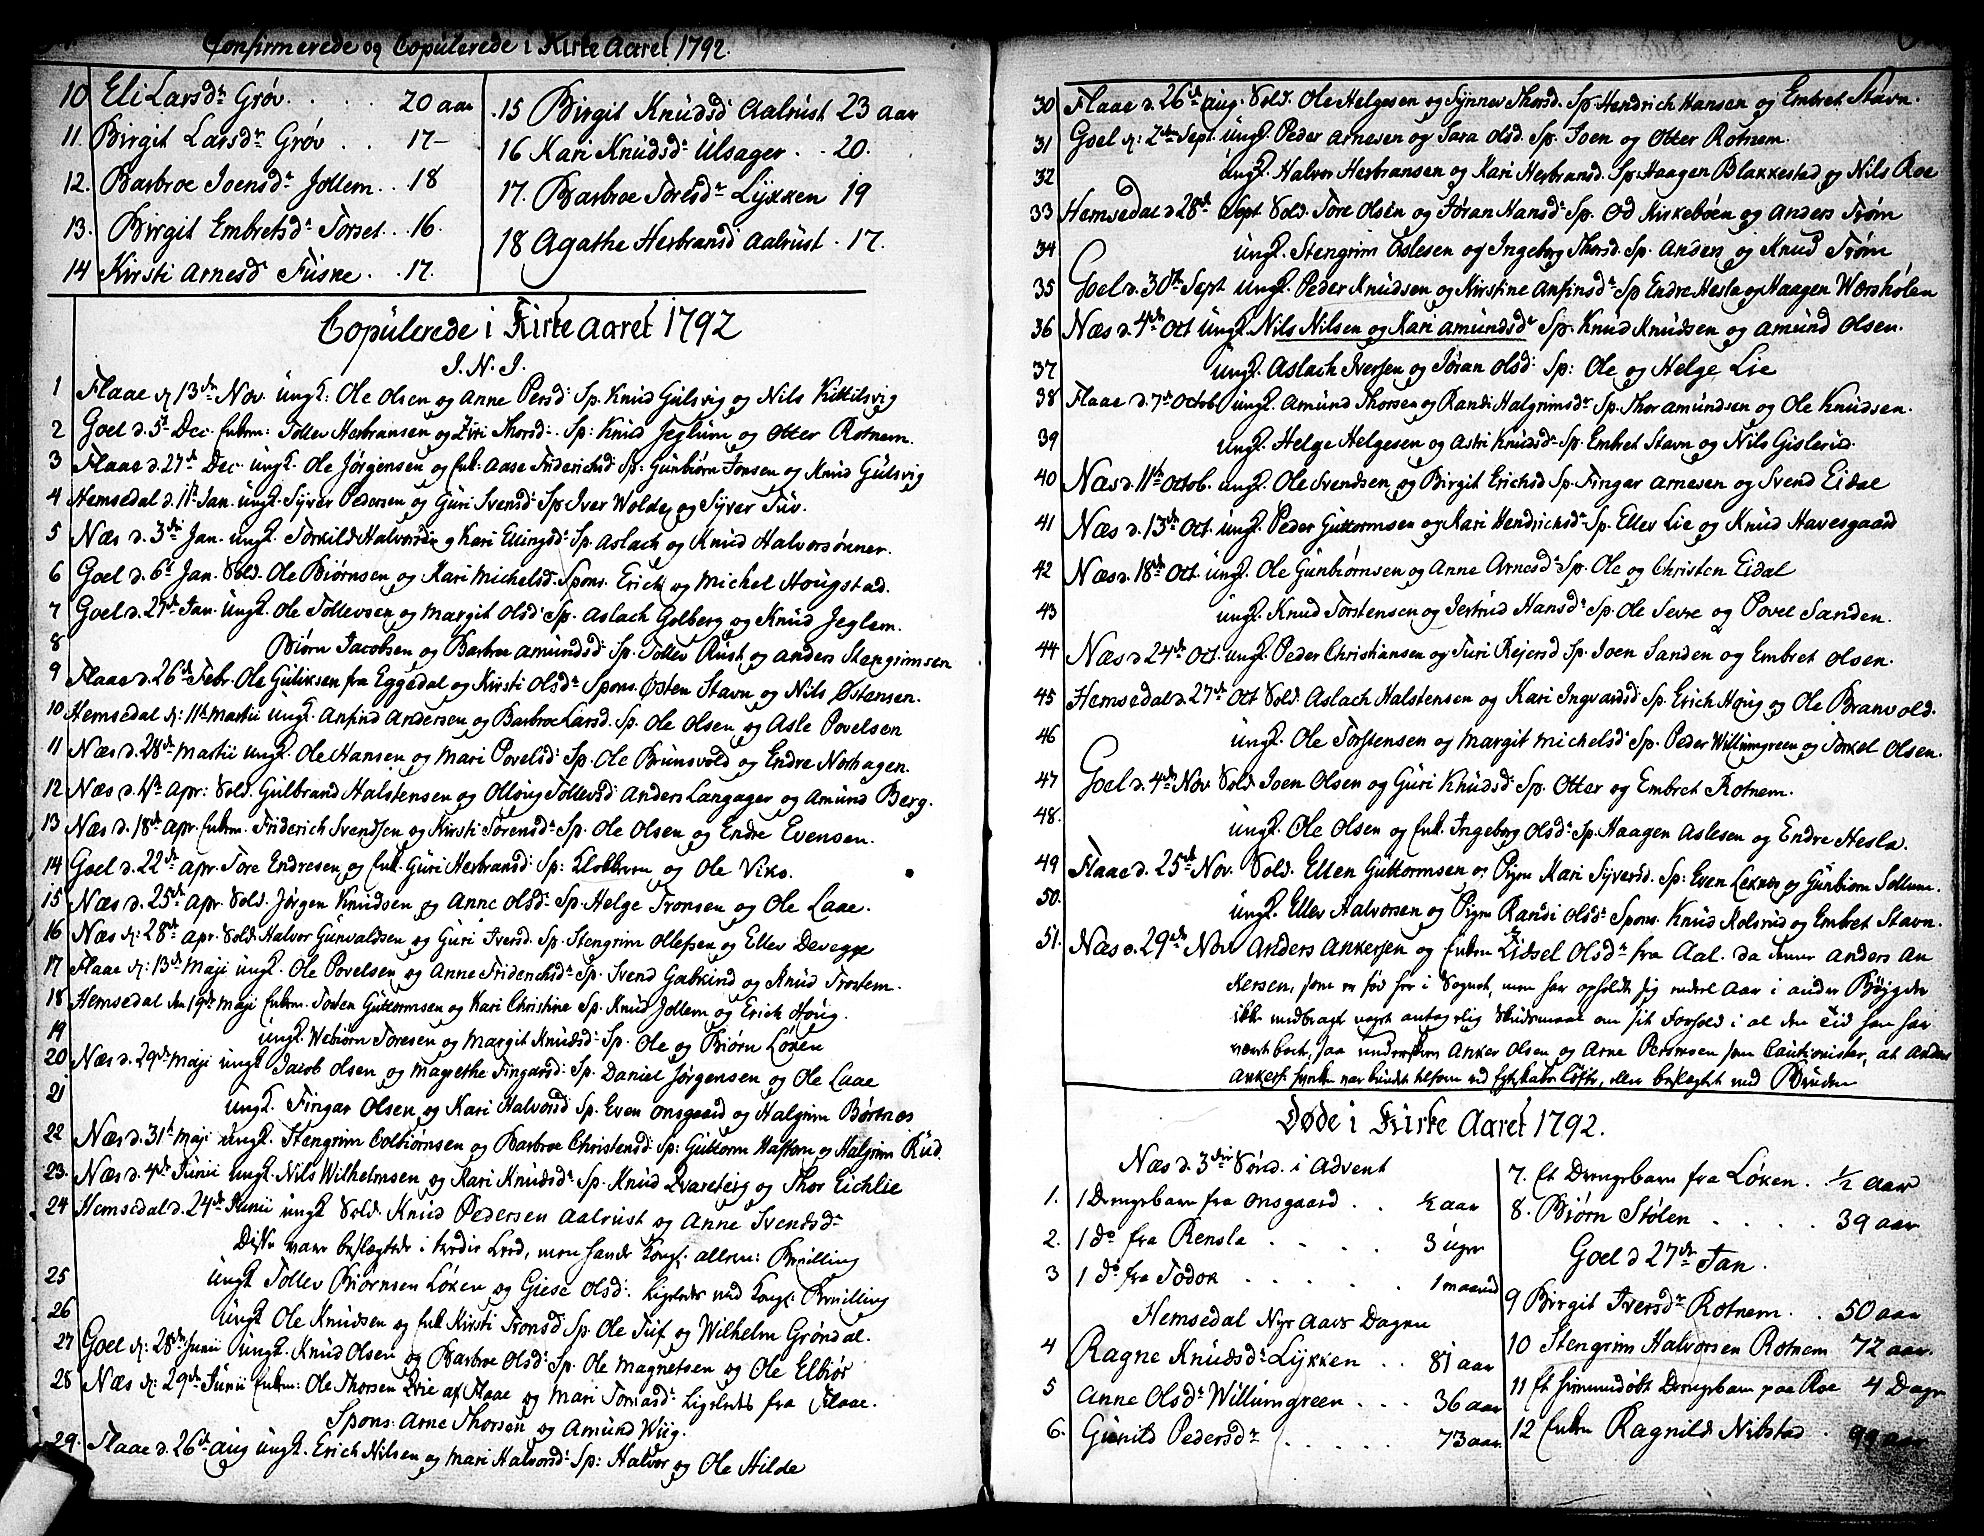 Confirmerede og Copulerede i Kirke Aaret 1792.
10 Eli Larsdr Grøv . . . . 20 aar
11. Birgit Larsdr Grøv . . 17 –
12. Barbroe Joensdr Jollem . . 18
13. Birgit Embretsdr Torset . . 16.
14 Kirsti Arnesd Fuske . . 17.
15 Birgit Knudsd Aalrust 23 aar
16 Kari Knudsdr Ulsager . . 20.
17. Barbroe Toresdr Lykken 19
18 Agathe Herbransd Aalrust . 17.
Copulerede i Kirke Aaret 1792
I. N. I.
1 Flaae d. 13de Nov. ungk: Ole Olsen og Anne Persd: Sp. Knud Gulsvig og Nils Kittilsvig
2 Goel d. 5t Dec. Enkem: Tollev Herbransen og Ziri Thorsd: Sp: Knud Jeglum og Otter Rotnem.
3 Flaae d. 27de Dec. ungk. Ole Jørgensen og Enk: Aase Friderichsd Sp: Gunbiørn Jonsen og Knud Gulsvig
4 Hemsedal d. 11te Jan. ungk. Syver Pedersen og Guri Svensd: Sp Iver Wolde og Syver Tuv.
5 Næs d. 3die Jan. ungk. Torkild Halvorsen og Kari Ellingsd: Sp. Aslach og Knud Halvorsønner.
6 Goel d. 6t Jan. Sold. Ole Biørnsen og Kari Michelsd. Spons. Erich og Michel Hougstad.
7 Goel d. 27de Jan. ungk. Ole Tollevsen og Margit Olsd: Sp. Aslach Golberg og Knud Jeglem.
8 Biørn Jacobsen og Barbroe Amundsd: Sp. Tollev Rust og Anders Stengrimsen
9 Flaae d. 26de Febr. Ole Guliksen fra Eggedal og Kirsti Olsdr Spons. Østen Stavn og Nils Østensen.
10 Hemsedal d: 11te Martii ungk. Anfind Andersen og Barbroe Larsd. Sp. Ole Olsen og Asle Povelsen
11 Næs d. 28de Martii ungk. Ole Hansen og Mari Povelsdr Sp. Ole Brunsvold og Endre Norhagen.
12 Næs d. 11te Apr: Sold. Gulbrand Halstensen og Olloug Tollevsd Anders Langager og Amund Berg.
13 Næs d. 18de Apr. Enkem. Friderich Svendsen og Kirsti Sorensdr Sp. Ole Olsen og Endre Evensen.
14 Goel d. 22de Apr. Tore Endresen og Enk. Guri Herbransd: Sp: Klokkeren og Ole Viko.
15 Næs d. 25de Apr. Sold. Jørgen Knudsen og Anne Olsdr Sp. Helge Tronsen og Ole Laae.
16 Næs d: 28de Apr. Sold. Halvor Gunvaldsen og Guri Iversd. Sp. Stengrim Ollefsen og Ellev Devegge
17 Flaae d: 13de Maji ungk. Ole Povelsen og Anne Friderichsdr Sp. Svend Gulskind og Knud Trostem.
18 Hemsedal den 19de Maji Enkem. Tosten Guttormsen og Kari Christine Sp. Knud Jollem og Erich Houg.
19 ungk. Webiørn Toresen og Margit Knudsd: Sp. Ole og Biørn Løken
20 Næs d. 29de Maji ungk Jacob Olsen og Magrethe Fingarsd: Sp. Daniel Jørgensen og Ole Laae
21 ungk. Fingar Olsen og Kari Halvorsd Sp. Even Onsgaard og Halgrim Børtnæs
22 Næs d. 31t Maji ungk. Stengrim Colbiørnsen og Barbroe Christensd: Sp: Guttorm Haftorn og Halgrim Rud.
23. Næs d. 4de Junii ungk. Nils Wilhelmsen og Kari Knudsdr Sp. Knud Qvareteig og Thor Eichlie
24 Hemsedal d. 24de Junii ungk Sold. Knud Pedersen Aalrust og Anne Svendsdr
Disse vare beslægtede i tredie Leed, men havde Kongl. allern: Bevilling
25 ungk Tollev Biørnsen Løken og Giese Olsd: Ligeledes med Kongl. Bevilling
26 ungk Ole Knudsen og Enk Kirsti Tronsd Sp. Ole Tuf og Wilhelm Grøndal.
27 Goel d: 28de Junii ungk. Knud Olsen og Barbroe Olsd: Sp. Ole Magnetsen og Ole Elbiør
28 Næs d: 29de Junii Enkem: Ole Thorsen Qvie af Flaae og Mari Tomasdr Ligeledes fra Flaae.
Spons: Arne Thorsen og Amund Wiig.
29. Flaae d. 26de Aug ungk. Erich Nilsen og Mari Halvorsd: Sp: Halvor og Ole Hilde
30 Flaae d. 26de Aug. Sold. Ole Helgesen og Synnev Thorsd. Sp. Hendrich Hansen og Embret Stavn.
31 Goel d: 2den Sept. ungk. Peder Arnesen og Sara Olsd. Sp. Joen og Otter Rotnem.
32 ungk. Halvor Herbransen og Kari Herbransd. Sp: Haagen Blakkestad og Nils Roe
33 Hemsedal d. 28de Sept Sold. Tore Olsen og Jøran Hansdr Sp. Od Kirkebøen og Anders Trøm
34 ungk. Stengrim Aslesen og Ingeborg Thorsd. Sp. Anders og Knud Trøm
35 Goel d. 30te Sept ungk. Peder Knudsen og Kirstine Anfinsdr Sp Endre Hesla og Haagen Worsholen
36 Næs d. 4de Oct ungk. Nils Nilsen og Kari Amundsdr Sp. Knud Knudsen og Amund Olsen.
37 ungk. Aslach Iversen og Jøran Olsd: Sp: Ole og Helge Lie
38 Flaae d. 7de Octob. ungk. Amund Thorsen og Randi Halgrimsdr Sp. Thor Amundsen og Ole Knudsen.
39 ungk. Helge Helgesen og Astri Knudsdr Sp. Embret Stavn og Nils Gislerud.
40 Næs d. 11te Octob. ungk. Ole Svendsen og Birgit Erichsd Sp. Fingar Arnesen og Svend Eidal
41 Næs d. 13de Oct. ungk. Peder Guttormsen og Kari Hendrichsdr Sp. Ellev Lie og Knud Havesgaard
42 Næs d. 18de Oct. ungk. Ole Gunbiørnsen og Anne Arnesdr Sp. Ole og Christen Eidal
43 ungk. Knud Torstensen og Jertrud Hansdr Sp. Ole Sevre og Povel Sanden.
44 Næs d. 24de Oct. ungk. Peder Christiansen og Turi Rejersd Sp. Joen Sanden og Embret Olsen.
45 Hemsedal d. 27de Oct Sold. Aslach Halstensen og Kari Ingvardsd Sp. Erich Houg og Ole Branvold.
46 ungk. Ole Torstensen og Margit Michelsd Sp. Peder Willumgreen og Torkel Olsen.
47 Goel d. 4de Nov Sold. Joen Olsen og Guri Knudsd Sp. Otter og Embret Rotnem.
48. ungk. Ole Olsen og Enk. Ingeborg Olsdr Sp. Haagen Aslesen og Endre Hesla.
49 Flaae d. 25de Nov. Sold. Ellen Guttormsen og Pigen Kari Syversd. Sp: Even Leknes og Gunbiorn Sollum.
50. ungk. Ellev Halvorsen og Pigen Randi Olsdr Spons. Knud Rolsrud og Embret Stavn.
51. Næs d. 29de Nov Anders Ankersen og Enken Zidsel Olsdr fra Aal. da denne Anders An
kersen, som er fød her i Sognet, men har opholdt sig nogle Aar i andre Bøygder
ikke medbragt noget antagelig Skudsmaal om sit Forhold i al den Tid han har
været bort, saa underskrev Anker Olsen og Arne Persensen som Cautionister, at Anders
Ankers. hverken var bundet tilforn ved Egteskabs Løfte, eller beslægtet med Bruden
Døde i Kirke Aaret 1792.
Næs d. 3die Sønd. i Advent
1. 1 Drengebarn fra Onsgaard . . ½ aar
2. 1 do fra Rensla . . . . 3 uger
3 1 do fra Todok . . . . . 1 maaned
Hemsedal Nyt Aars Dagen
4 Ragne Knudsdr Lykken . . 81 aar
5 Anne Olsdr Willumgreen . . . 36 aar
6. Gunild Pedersdr . . . . . 73 aar
7. Et Drengebarn fra Løken. ½ aar
8. Biørn Stølen . . . . . 39 aar
Goel d 27de Jan.
9 Birgit Iversdr Rotnem. . 50 aar
10 Stengrim Halvorsen Rotnem 72 aar.
11 Et hiemmedøbt Drengebarn paa Roe 4 Dage
12 Enken Ragnild Nibstad . 99 aar